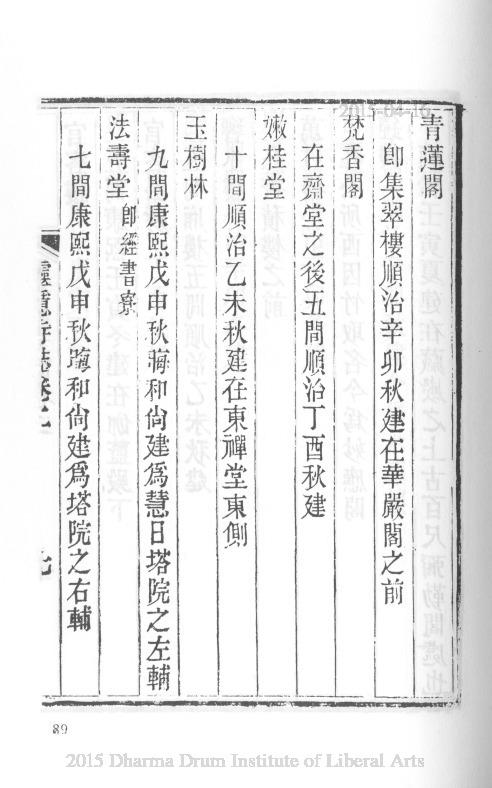 青蓮閣
即集翠樓順治辛卯秋建在華嚴閣之前
梵香閣
在齋堂之後五間順治丁酉秋建
嫩桂堂
十間順治乙未秋建在東禪堂東側
玉樹林
九間康熙戊申秋晦和尙建爲慧日塔院之左輔
法壽堂 即經書寮
七間康熙戊申秋晦和尙建爲塔院之右輔
七
89
2015 Dharma Drum Institute of Liberal Arts